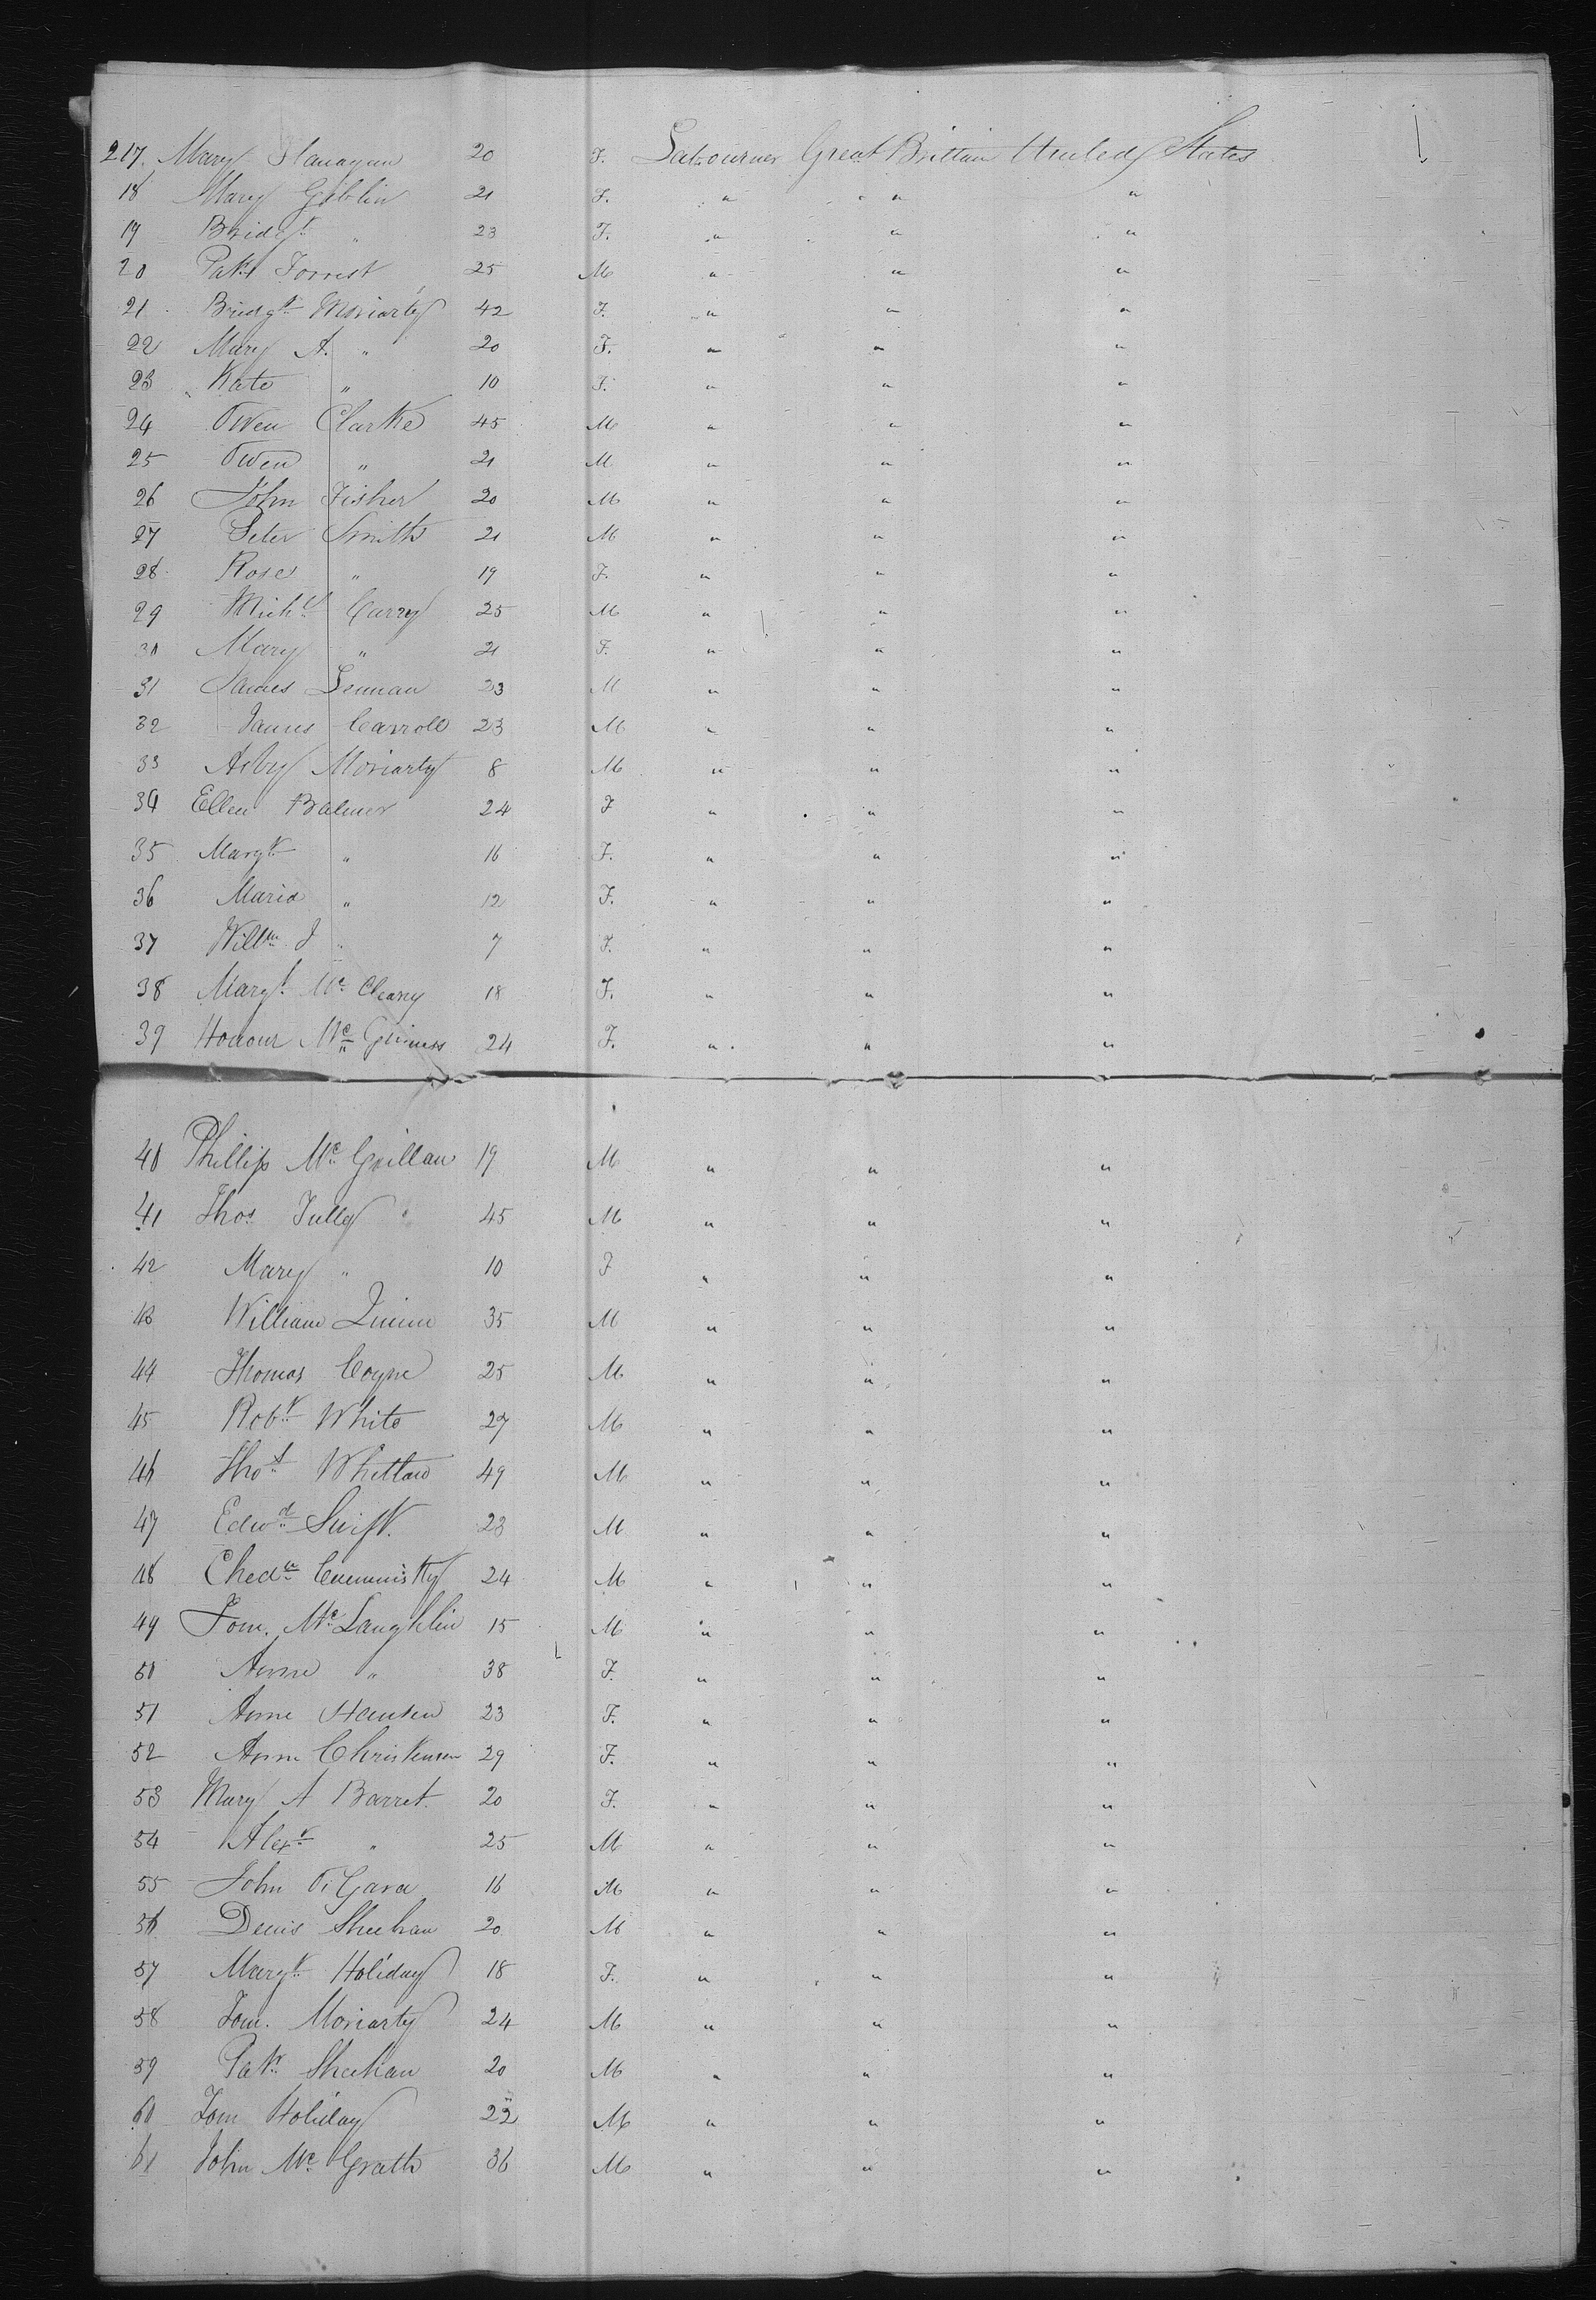 217. Mary Flanagan 20 F. Labourer Great Brittain United States
18 Mary Giblin 21 F. " " "
19 Bridgt " 23 F. " " "
20 Patk Forrest 25 M " " "
21 Bridgt Moriarty 42 F. " " "
22 Mary A. " 20 F. " " "
23 Kate " 10 F. " " "
24 Owen Clarke 45 M " " "
25 Owen " 21 M " " "
26 John Fisher 20 M " " "
27 Peter Smith 21 M " " "
28 Rose " 19 F. " " "
29 Michl Carry 25 M " " "
30 Mary " 21 F. " " "
31 James Lennan 23 M " " "
32 James Carroll 23 M " " "
33 Moriarty 8 M " " "
34 Ellen Balmer 24 F " " "
35 Margt " 16 F. " " "
36 Maria " 12 F. " " "
37 Willm J " 7 F. " " "
38 Margt Mc Cleary 18 F. " " "
39 Honour Mc Guiness 24 F. " " "
40 Phillip Mc Guillan 19 M " " "
41 Thos Tully 45 M " " "
42 Mary " 10 F " " "
43 William Quinn 35 M " " "
44 Thomas Coyne 25 M " " "
45 Robt White 27 M " " "
46 Thos 49 M " " "
47 Edwd Swift. 23 M " " "
48 24 M " " "
49 Tom. Mc Laughlin 15 M " " "
50 Anne " 38 F. " " "
51 Anne Hansen 23 F. " " "
52 Anne Christensen 29 F. " " "
53 Mary A Barret. 20 F. " " "
54 Alexr " 25 M " " "
55 John O'Gara 16 M " " "
56 Denis Sheehan 20 M " " "
57 Margt Holiday 18 F. " " "
58 Tom. Moriarty 24 M " " "
59 Patk Sheehan 20 M " " "
60 Tom Holiday 22 M " " "
61 John Mc Grath 36 M " " "